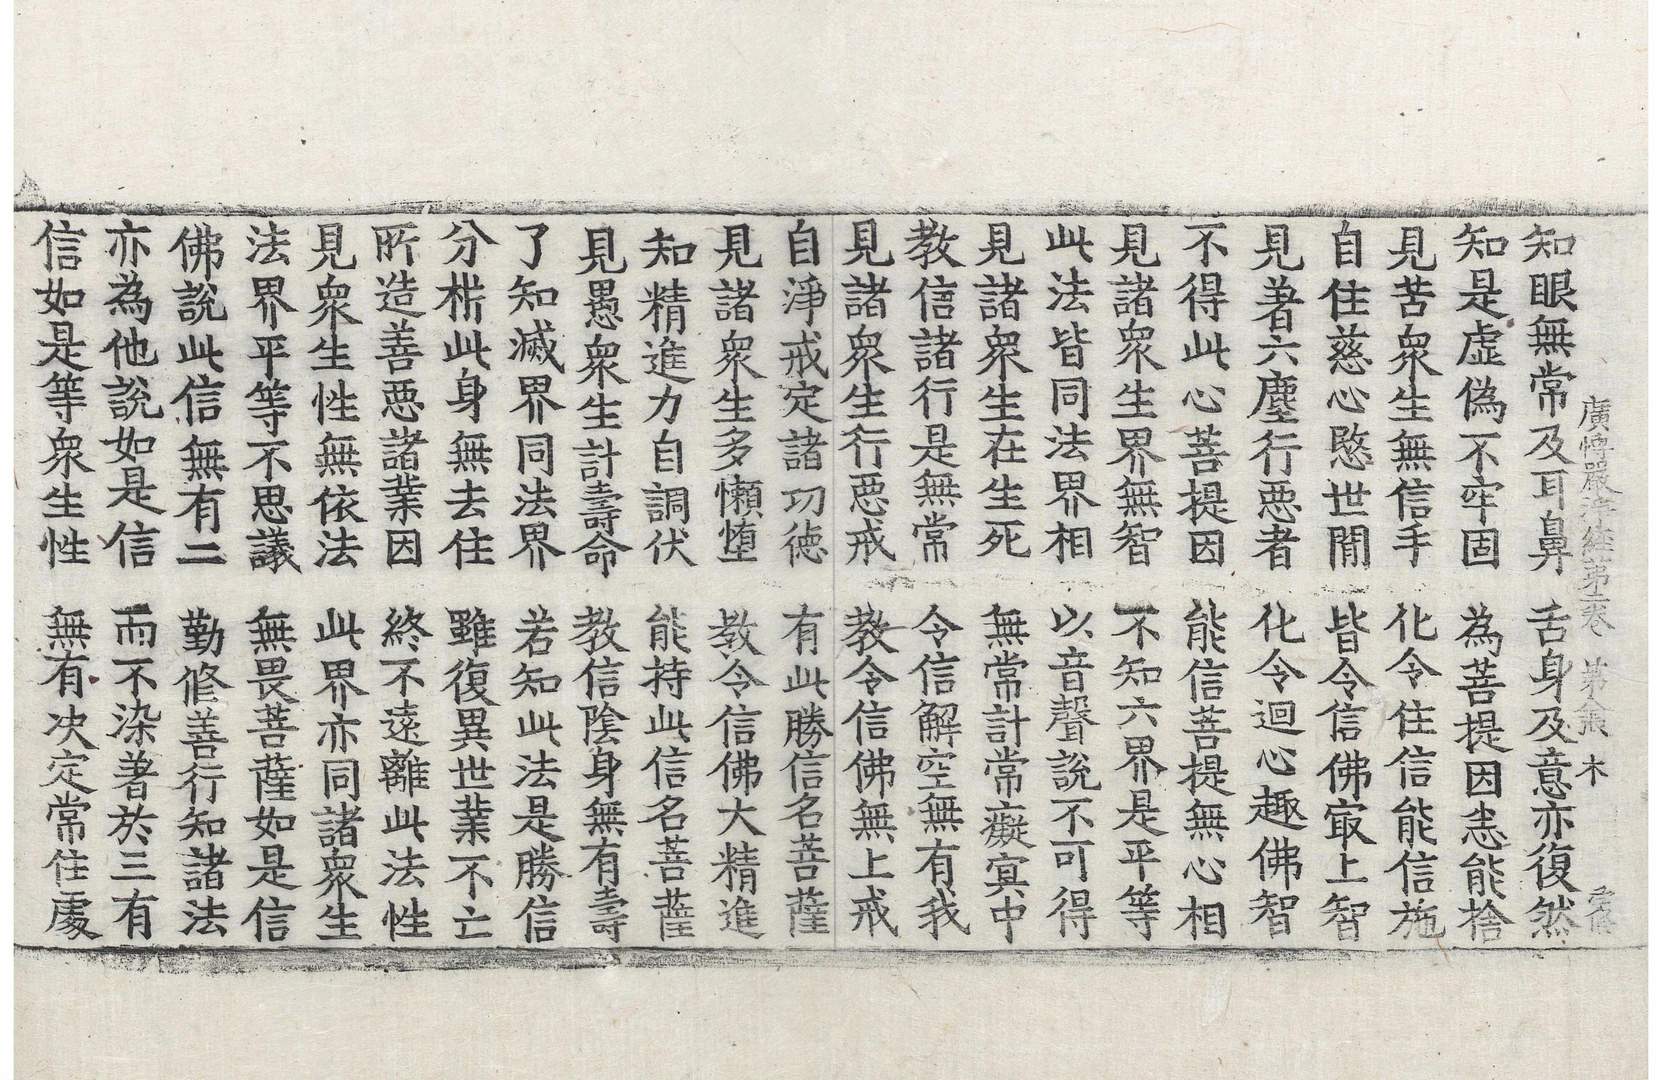 廣博嚴淨經第二卷 第 木
知眼無常及耳鼻 舌身及意亦復然
知是虛偽不牢固 為菩提因恚能捨
見苦衆生無信手 化令住信能信施
自住慈心愍世間 皆令信佛㝡上智
見著六塵行惡者 化令迴心趣佛智
不得此心菩提因 能信菩提無心相
見諸衆生界無智 不知六界是平等
此法皆同法界相 以音聲說不可得
見諸衆生在生死 無常計常癡冥中
教信諸行是無常 令信解空無有我
見諸衆生行惡戒 教令信佛無上戒
自淨戒定諸功德 有此勝信名菩薩
見諸衆生多懶墮 教令信佛大精進
知精進力自調伏 能持此信名菩薩
見愚衆生計壽命 教信陰身無有壽
了知滅界同法界 若知此法是勝信
分㭊此身無去住 雖復異世業不亡
所造善惡諸業因 終不遠離此法性
見衆生性無依法 此界亦同諸衆生
法界平等不思議 無畏菩薩如是信
佛說此信無有二 勤修善行知諸法
亦為他說如是信 而不染著於三有
信如是等衆生性 無有决定常住處